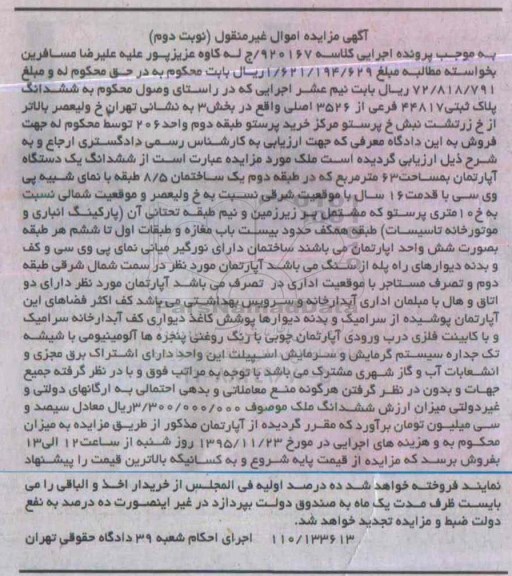 آگهی مزایده اموال غیرمنقول (نوبت دوم)
به موجب پرونده اجرایی کلاسه ۹۲۰۱۶۷/ج له کاوه عزیزپور علیه علیرضا مسافرین
بخواسته مطالبه مبلغ ۱/۶۲۱/۱۹۴/۶۲۹ ریال بابت محکوم به در حق محکوم له و مبلغ
۷۲/۸۱۸/۷۹۱ ریال بابت نیم عشر اجرایی که در راستای وصول محکوم به ششدانگ
پلاک ثبتی ۴۴۸۱۷ فرعی از ۳۵۲۶ اصلی واقع در بخش۳ به نشانی تهران خ ولیعصر بالاتر
از خ زرتشت نبش خ پرستو مرکز خرید پرستو طبقه دوم واحد۲۰۶ توسط محکوم له جهت
فروش به این دادگاه معرفی که جهت ارزیابی به کارشناس رسمی دادگستری ارجاع و به
شرح ذیل ارزیابی گردیده است ملک مورد مزایده عبارت است از ششدانگ یک دستگاه
آپارتمان بمساحت۶۳ مترمربع که در طبقه دوم یک ساختمان ۸/۵ طبقه با نمای شبیه پی
وی سی با قدمت۱۶ سال با موقعیت شرقی نسبت به خ ولیعصر و موقعیت شمالی نسبت
به خ۱۰متری پرستو که مشتمل بر زیرزمین و نیم طبقه تحتانی آن (پارکینگ انباری و
موتورخانه تاسیسات) طبقه همکف حدود بیست باب مغازه و طبقات اول تا ششم هر طبقه
بصورت شش واحد اپارتمان می باشند ساختمان دارای نورگیر میانی نمای پی وی سی و کف
و بدنه دیوارهای راه پله از سنگ می باشد آپارتمان مورد نظر در سمت شمال شرقی طبقه
دوم و تصرف مستاجر با موقعیت اداری در تصرف می باشد آپارتمان مورد نظر دارای دو
اتاق و هال با مبلمان اداری آبدارخانه و سرویس بهداشتی می باشد کف اکثر فضاهای این
آپارتمان پوشیده از سرامیک و بدنه دیوارها پوشش کاغذ دیواری کف آبدارخانه سرامیک
و با کابینت فلزی درب ورودی آپارتمان چوبی با رنگ روغنی پنجره ها آلومینیومی با شیشه
تک جداره سیستم گرمایش و سرمایش اسپیلت این واحد دارای اشتراک برق مجزی و
انشعابات آب و گاز شهری مشترک می باشد با توجه به مراتب فوق و با در نظر گرفته جمیع
جهات و بدون در نظر گرفتن هرگونه منع معاملاتی و بدهی احتمالی به ارگانهای دولتی و
غیردولتی میزان ارزش ششدانگ ملک موصوف ۳/۳۰۰/۰۰۰/۰۰۰ریال معادل سیصد و
سی میلیون تومان برآورد که مقرر گردیده از آپارتمان مذکور از طریق مزایده به میزان
محکوم به و هزینه های اجرایی در مورخ ۱۳۹۵/۱۱/۲۳ روز شنبه از ساعت۱۲ الی۱۳
بفروش برسد که مزایده از قیمت پایه شروع و به کسانیکه بالاترین قیمت را پیشنهاد
نمایند فروخته خواهد شد ده درصد اولیه فی المجلس از خریدار اخذ و الباقی را می
بایست ظرف مدت یک ماه به صندوق دولت بپردازد در غیر اینصورت ده درصد به نفع
دولت ضبط و مزایده تجدید خواهد شد.
۱۱۰/۱۳۳۶۱۳ اجرای احکام شعبه ۳۹ دادگاه حقوقی تهران